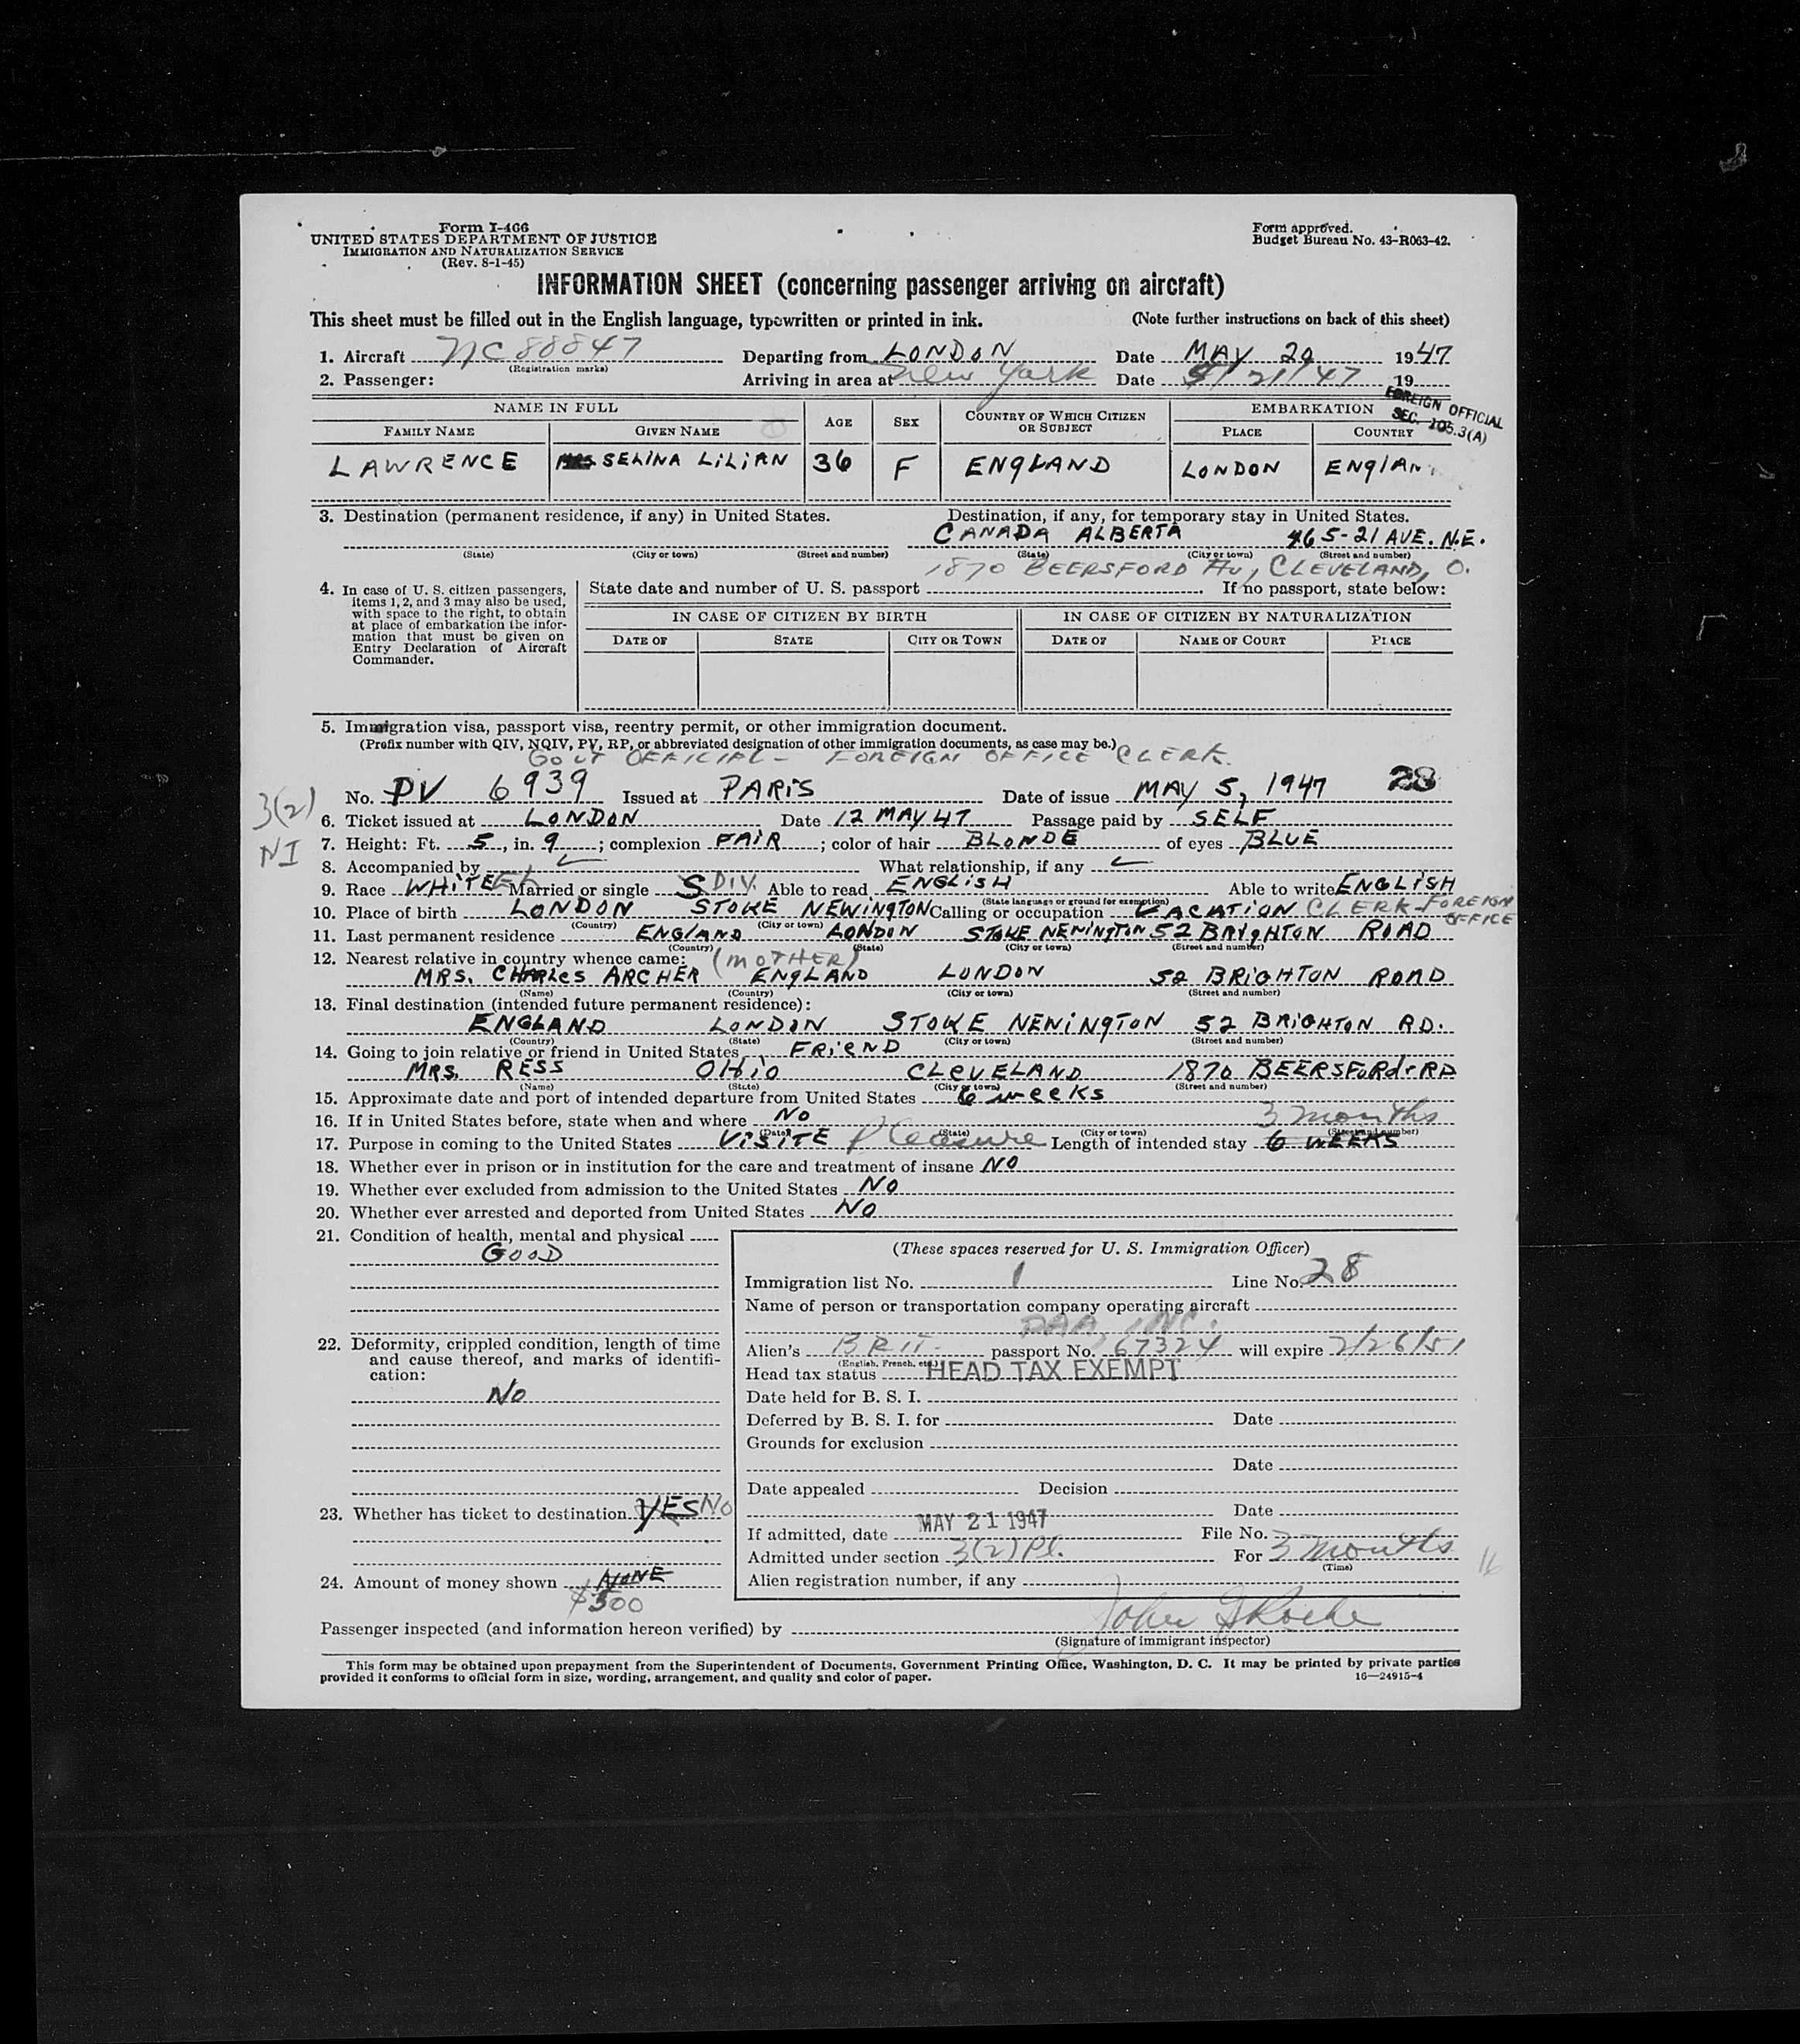 Form I-466
UNITED STATES DEPARTMENT OF JUSTICE
IMMIGRATION AND NATURALIZATION SERVICE
(Rev. 8-1-45)
Form approved.
Budget Bureau No. 43-R063-42.
INFORMATION SHEET (concerning passenger arriving on aircraft)
This sheet must be filled out in the English language, typewritten or printed in ink. (Note further instructions on back of this sheet)
1. Aircraft NC 88847 Departing from LONDON Date MAY 20 1947
(Registration marks)
2. Passenger: Arriving in area at New York Date 5/21/47 19
FOREIGN OFFICIAL
SEC. 105.3(A)
NAME IN FULL AGE SEX COUNTRY OF WHICH CITIZEN OR SUBJECT EMBARKATION
FAMILY NAME GIVEN NAME PLACE COUNTRY
LAWRENCE MRS. SELINA LILIAN 36 F ENGLAND LONDON ENGLAN
3. Destination (permanent residence, if any) in United States. Destination, if any, for temporary stay in United States.
CANADA ALBERTA 465-21 AVE. N.E.
(State) (City or town) (Street and number) (State) (City or town) (Street and number)
1870 BEERSFORD AV, CLEVELAND, O.
4. In case of U. S. citizen passengers, items 1, 2, and 3 may also be used, with space to the right, to obtain at place of embarkation the information that must be given on Entry Declaration of Aircraft Commander.
State date and number of U. S. passport If no passport, state below:
IN CASE OF CITIZEN BY BIRTH IN CASE OF CITIZEN BY NATURALIZATION
DATE OF STATE CITY OR TOWN DATE OF NAME OF COURT PLACE
5. Immigration visa, passport visa, reentry permit, or other immigration document.
(Prefix number with QIV, NQIV, PV, RP, or abbreviated designation of other immigration documents, as case may be.)
GOVT OFFICIAL - FOREIGN OFFICE CLERK.
No. PV 6939 Issued at PARIS Date of issue MAY 5, 1947 28
3(2)
NI
6. Ticket issued at LONDON Date 12 MAY 47 Passage paid by SELF
7. Height: Ft. 5, in. 9; complexion FAIR; color of hair BLONDE of eyes BLUE
8. Accompanied by What relationship, if any
9. Race WHITE Married or single S DIV. Able to read ENGLISH Able to write ENGLISH
(State language or ground for exemption)
10. Place of birth LONDON STOKE NEWINGTON Calling or occupation VACATION CLERK-FOREIGN OFFICE
(Country) (City or town)
11. Last permanent residence ENGLAND LONDON STOKE NEWINGTON 52 BRIGHTON ROAD
(Country) (State) (City or town) (Street and number)
12. Nearest relative in country whence came: (MOTHER)
MRS. CHARLES ARCHER ENGLAND LONDON 52 BRIGHTON ROAD
(Name) (Country) (City or town) (Street and number)
13. Final destination (intended future permanent residence):
ENGLAND LONDON STOKE NEWINGTON 52 BRIGHTON RD.
(Country) (State) (City or town) (Street and number)
14. Going to join relative or friend in United States FRIEND
MRS. RESS OHIO CLEVELAND 1870 BEERSFORD RD
(Name) (State) (City or town) (Street and number)
15. Approximate date and port of intended departure from United States 6 weeks
16. If in United States before, state when and where NO 3 months
(Date) (State) (City or town) (Street and number)
17. Purpose in coming to the United States VISITE Pleasure Length of intended stay 6 WEEKS
18. Whether ever in prison or in institution for the care and treatment of insane NO
19. Whether ever excluded from admission to the United States NO
20. Whether ever arrested and deported from United States NO
21. Condition of health, mental and physical
GOOD
22. Deformity, crippled condition, length of time and cause thereof, and marks of identification:
NO
23. Whether has ticket to destination YES NO
24. Amount of money shown NONE
$500
(These spaces reserved for U. S. Immigration Officer)
Immigration list No. 1 Line No. 28
Name of person or transportation company operating aircraft
PAA, INC.
Alien's BRIT. passport No. 67324 will expire 2/26/51
(English, French, etc.)
Head tax status HEAD TAX EXEMPT
Date held for B. S. I.
Deferred by B. S. I. for Date
Grounds for exclusion
Date
Date appealed Decision
Date
If admitted, date MAY 21 1947 File No.
Admitted under section 3(2) Pl. For 3 months
(Time)
Alien registration number, if any
16
Passenger inspected (and information hereon verified) by John Roche
(Signature of immigrant inspector)
This form may be obtained upon prepayment from the Superintendent of Documents, Government Printing Office, Washington, D. C. It may be printed by private parties
provided it conforms to official form in size, wording, arrangement, and quality and color of paper. 16—24915-4